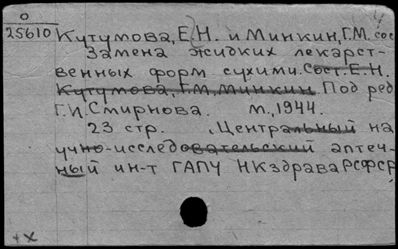 0
25610
Кутумова, Е.Н. и Минкин, Г.М. сост
Замена жидких лекарст-
венных форм сухими. Сост. Е.Н.
Кутумова, Г.М. Минкин. Под ред
Г.И. Смирнова. М., 1944.
23 стр. Центральный на
учно-исследовательский аптеч-
ный ин-т ГАПУ НКздрава РСФСР
+х